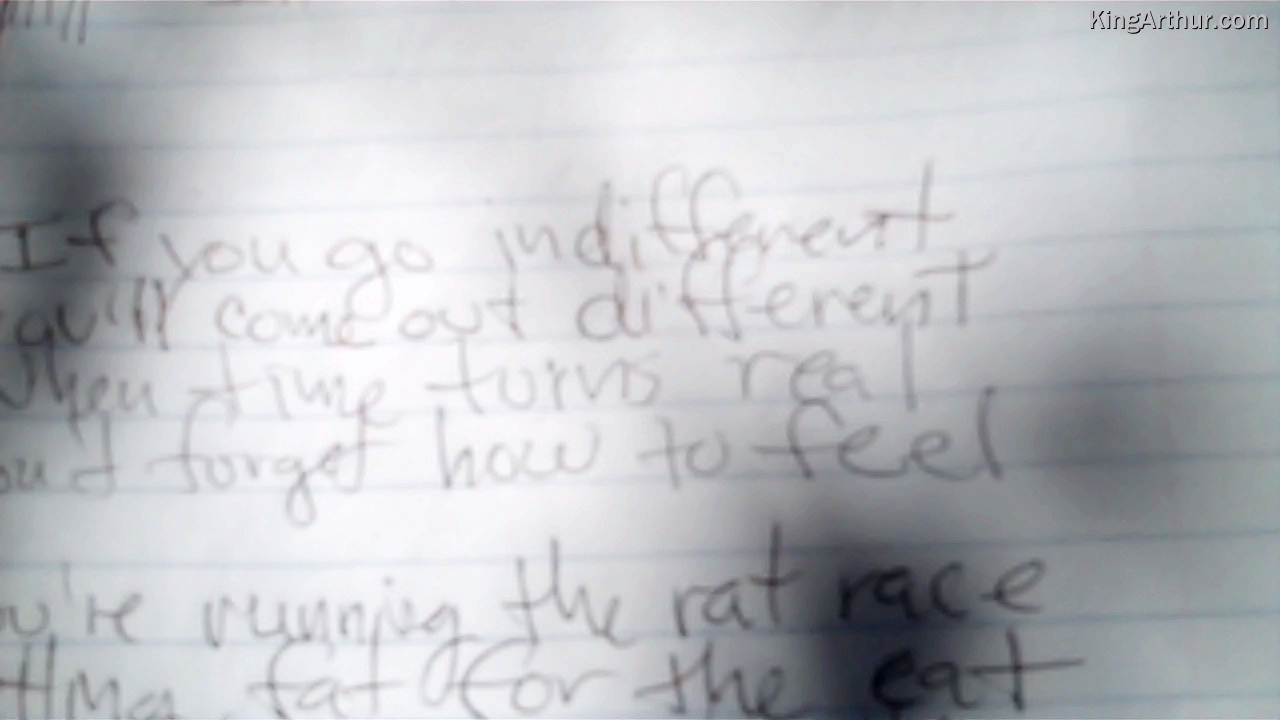 KingArthur.com
If you go indifferent
you'll come out different
when time turns real
you'd forget how to feel
you're running the rat race
fat for the eat